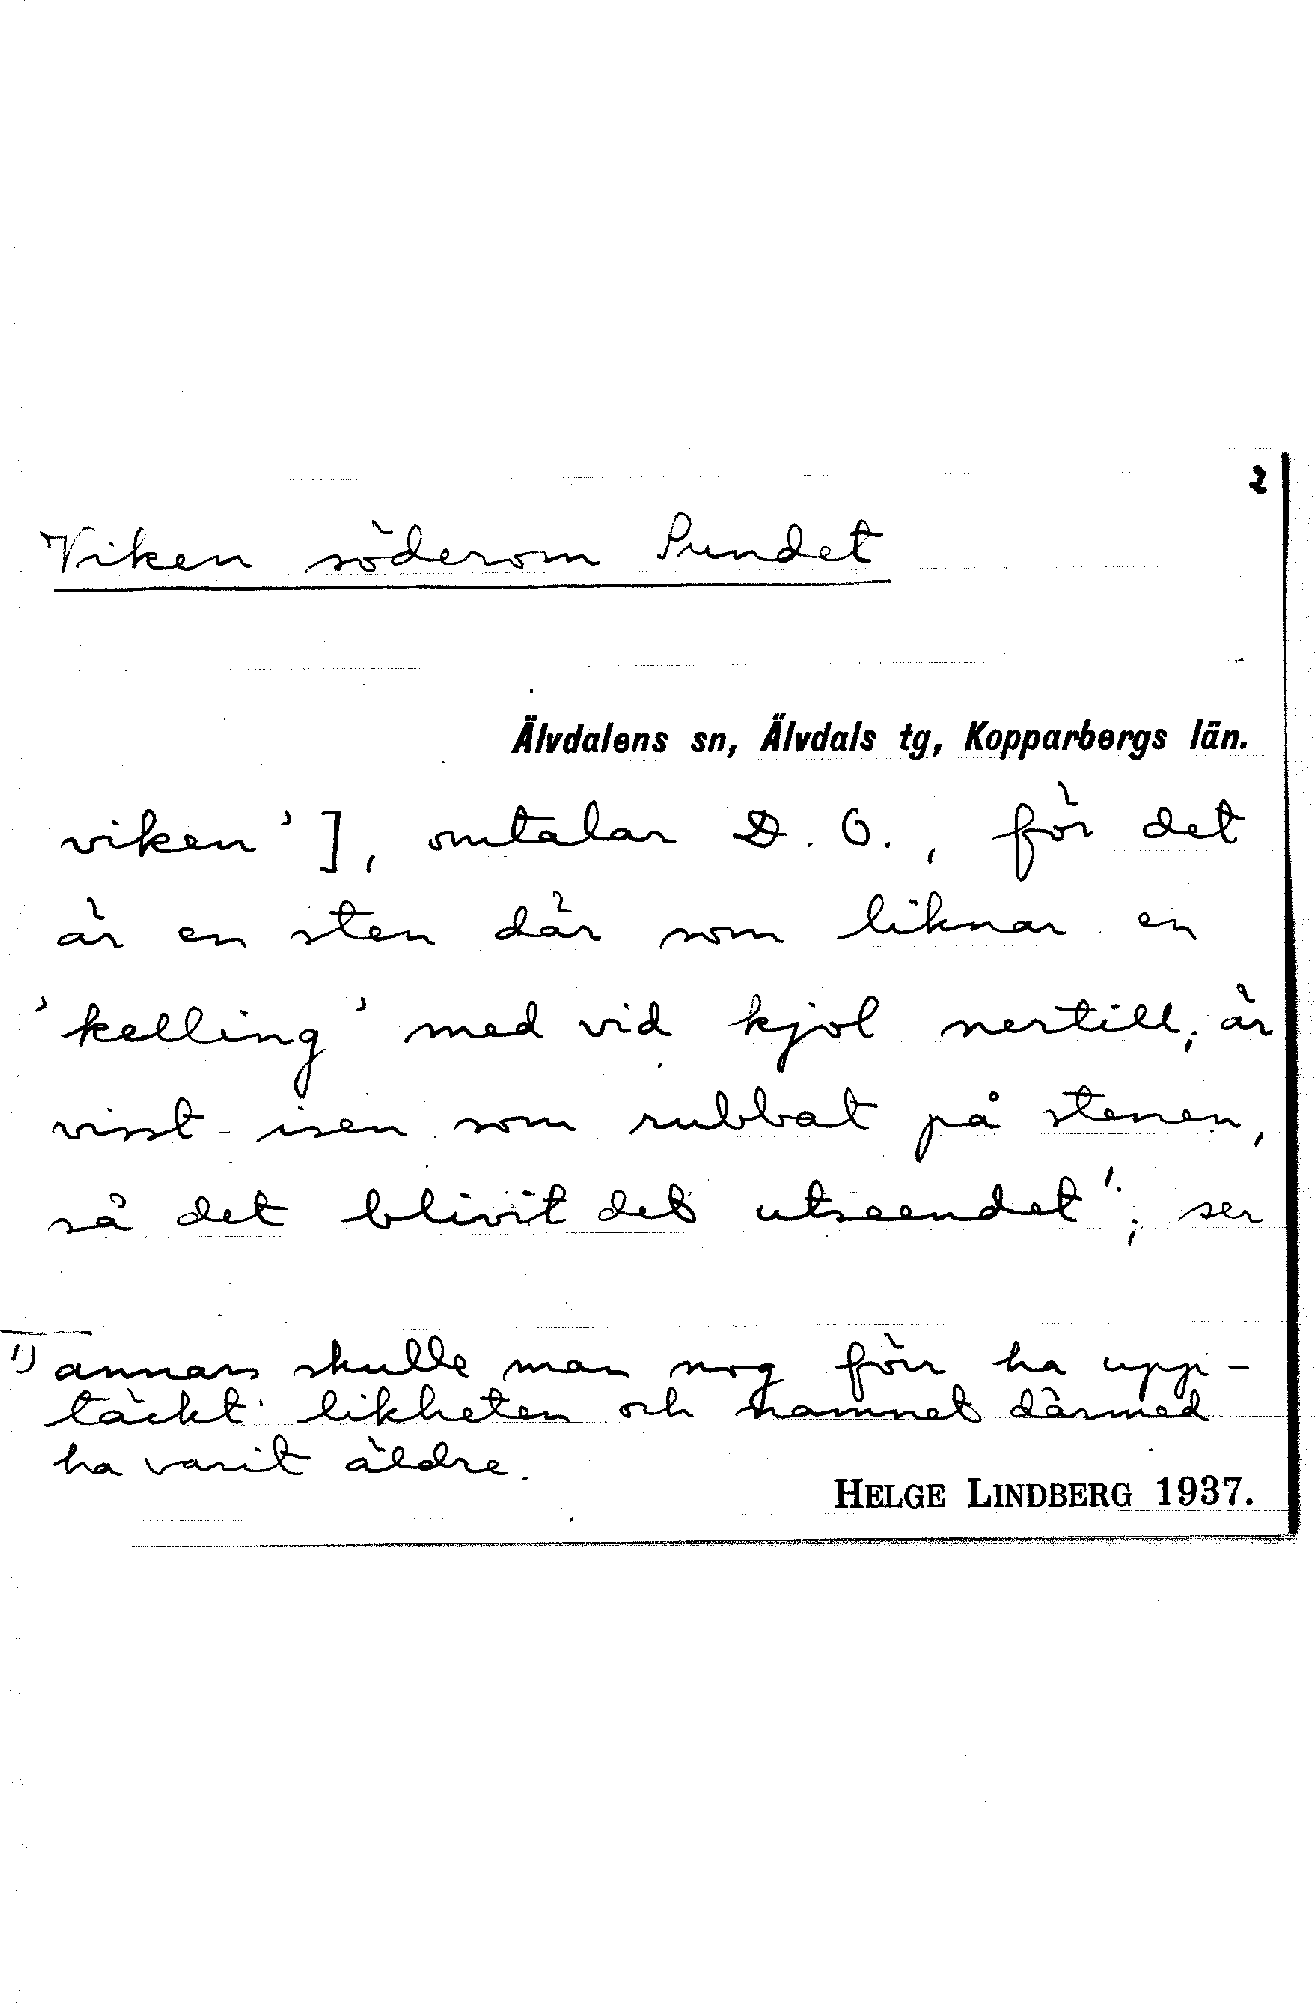 2
Viken söderom Sundet
Älvdalens sn, Älvdals tg, Kopparbergs län.
viken'], omtalar D. O., för det
är en sten där som liknar en
'kelling' med vid kjol nertill; är
visst isen som rubbat på stenen,
så det blivit det utseendet¹; ser
1) annars skulle man nog förr ha upp-
täckt likheten och namnet därmed
ha varit äldre.
HELGE LINDBERG 1937.